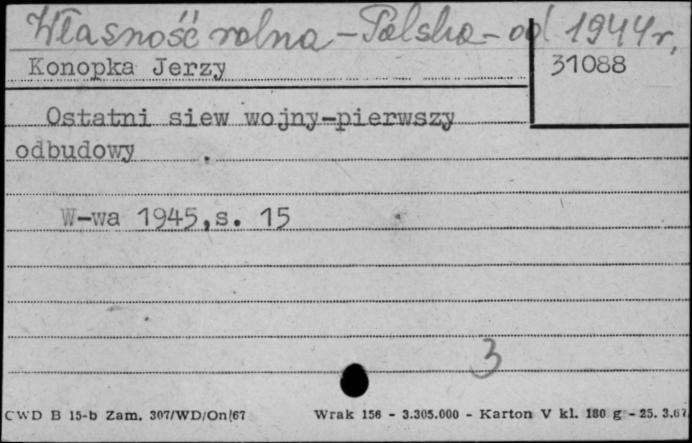 Własność rolna - Polska - od 1944 r.
Konopka Jerzy 31088
Ostatni siew wojny-pierwszy
odbudowy
W-wa 1945,s. 15
3
CWD B 15-b Zam. 307/WD/On/67 Wrak 156 - 3.305.000 - Karton V kl. 180 g - 25. 3.67